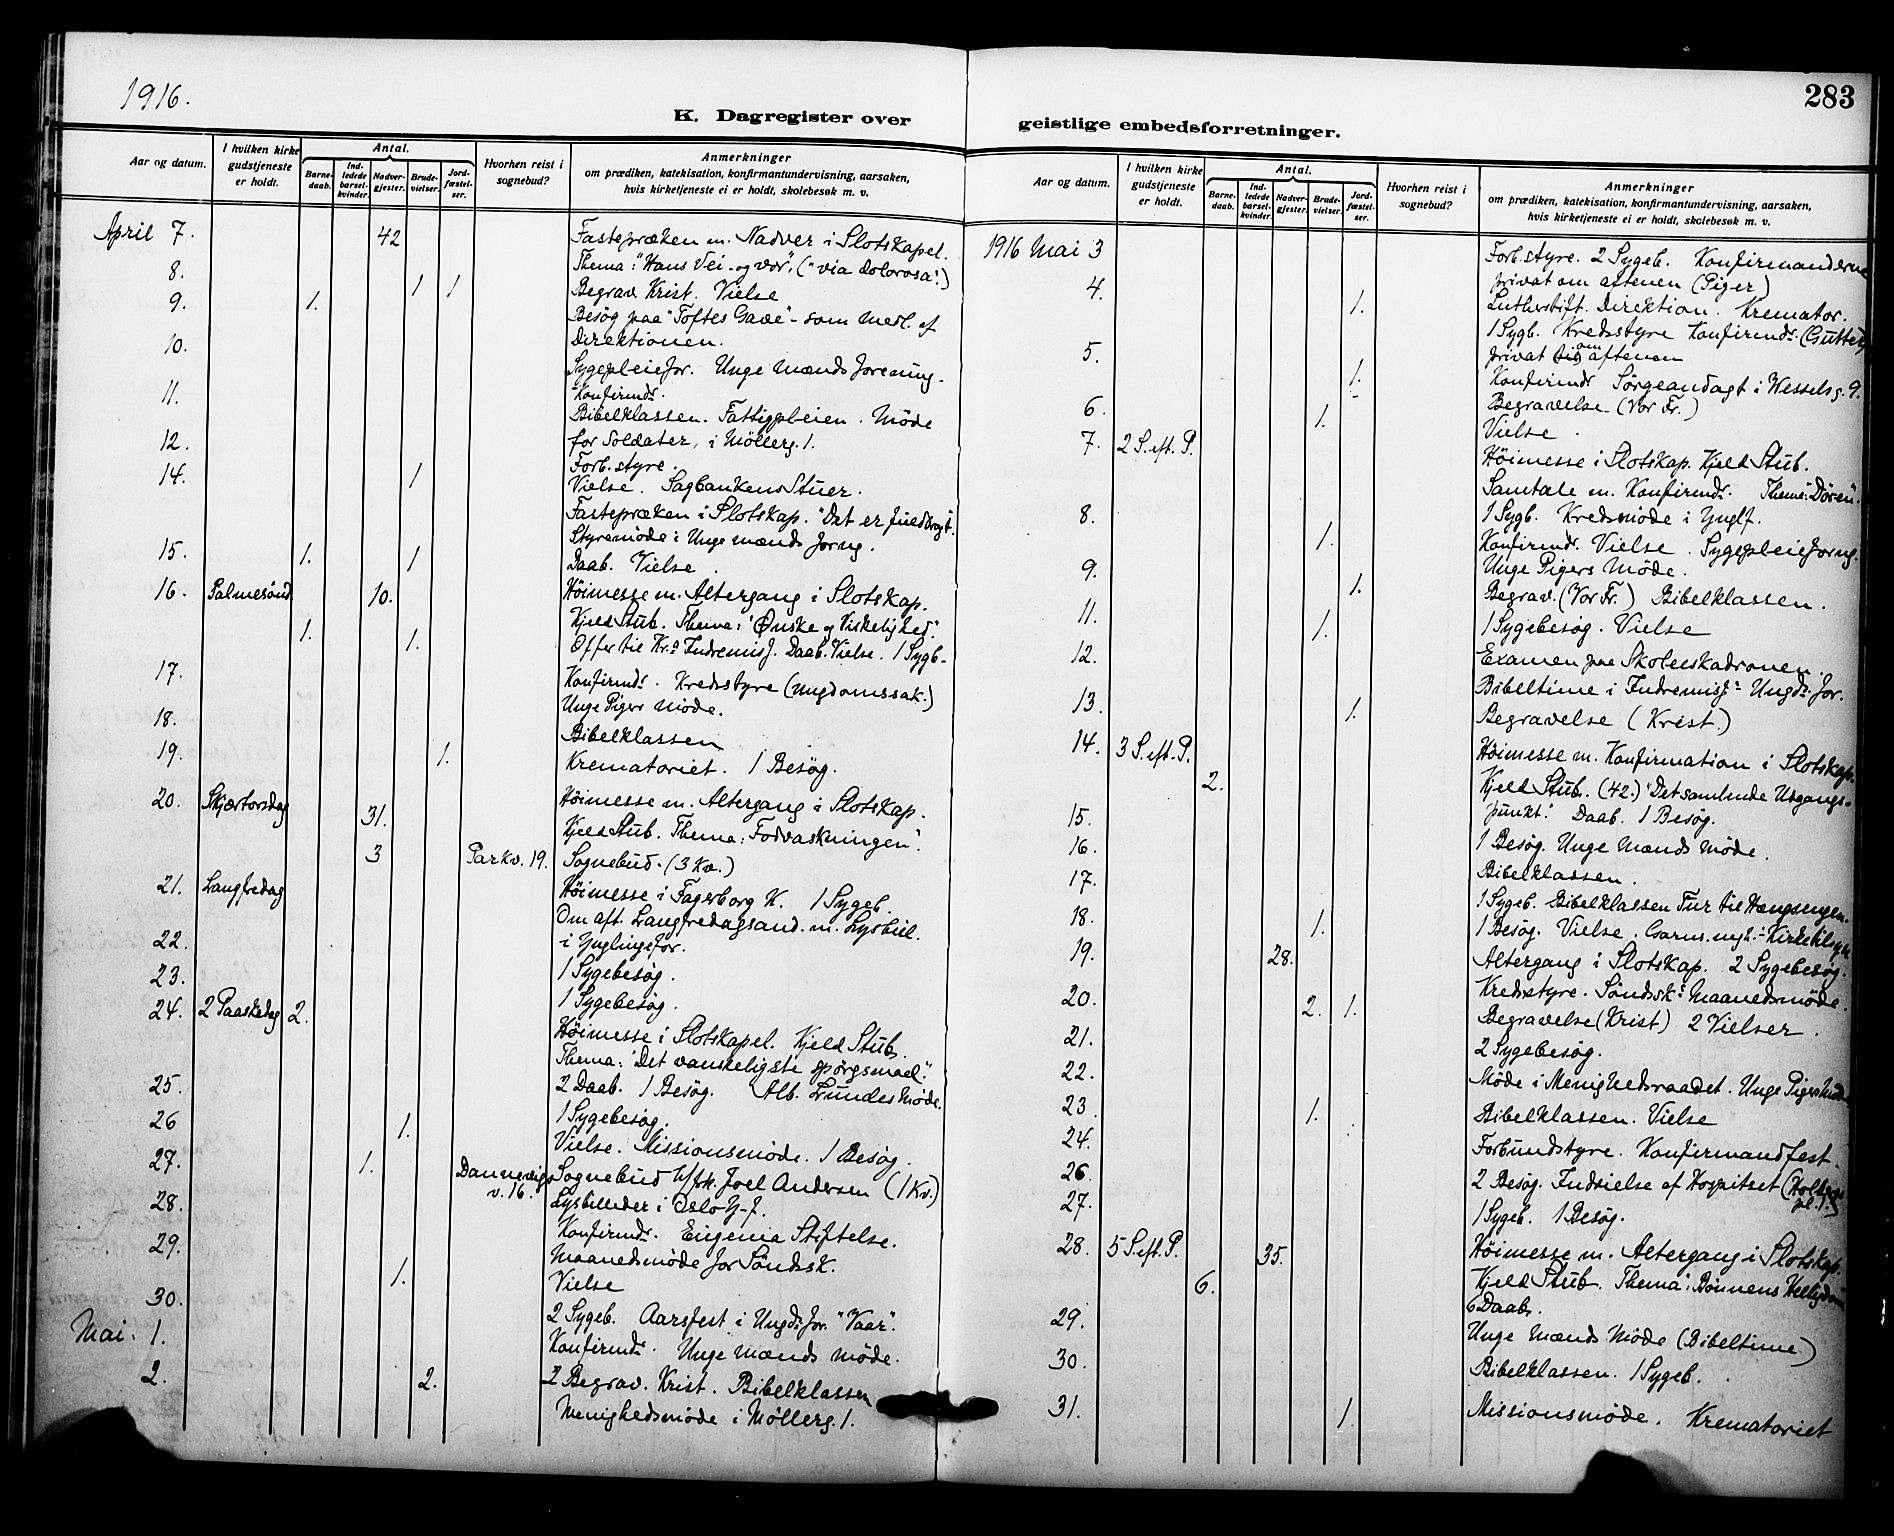 1916.
K. Dagregister over
Aar og datum.
I hvilken kirke gudstjeneste er holdt.
Antal.
Barne-daab.
Ind-ledede barsel-kvinder.
Nadver-gjester.
Brude-vielser.
Jord-fæstel-ser.
Hvorhen reist i sognebud?
Anmerkninger
om prædiken, katekisation, konfirmantundervisning, aarsaken,
hvis kirketjeneste ei er holdt, skolebesøk m. v.
April 7. 42 Fastepræken m. Nadver i Slotskapel.
Thema: "Hans Vei - og vor". ("via dolorosa")
8. 1 1 Begrav. Krist. Vielse
9. 1. Besøg paa "Toftes Gave" - som medl. af
Direktionen.
10. Sygepleiefor. Unge Mænds Forening.
Konfirmdr.
11. Bibelklassen. Fattigpleien. Møde
for Soldater, i Møllerg. 1.
12. Forb. styre.
14. 1 Vielse. Sagbankens Stuer.
Fastepræken i Slotskap. "Det er fuldbragt".
Styremøde i Unge mænds forng.
15. 1. 1 Daab. Vielse.
16. Palmesønd 10. Høimesse m. Altergang i Slotskap.
Kjeld Stub. Thema: "Ønske og Virkelighed".
1. 1. Offer til Kr.a Indremisj. Daab. Vielse. 1 Sygb.
17. Konfirmdr. Kredsstyre (Ungdomssak.)
Unge Pigers Møde.
18. Bibelklassen
19. 1. Krematoriet. 1 Besøg.
20. Skjærtorsdag 31. Høimesse m. Altergang i Slotskap.
Kjeld Stub. Thema: Fodvaskningen".
3 Parkv. 19. Sognebud. (3 Kv.)
21. Langfredag Høimesse i Fagerborg K. 1 Sygeb.
Om aft. Langfredagsand. m. Lysbil.
i Ynglingefor.
22. 1 Sygebesøg.
23. 1 Sygebesøg.
24. 2 Paaskedag 2. Høimesse i Slotskapel. Kjeld Stub.
Thema: "Det vanskeligste spørgsmaal".
2 Daab. 1 Besøg. Alb. Lundes Møde.
25. 1 Sygebesøg
26 1. Vielse. Missionsmøde. 1 Besøg.
27. 1. Dannevigs v. 16. Sognebud Joel Andersen (1 Kv.)
Lysbilleder i Oslo Y-f.
28. Konfirmdr. Eugenia Stiftelse.
29. Maanedsmøde for Søndssk.
1. Vielse
30. 2 Sygeb. Aarsfest i Ungdsfor. "Vaar".
Mai. 1. Konfirmdr. Unge Mænds Møde.
2. 2. 2 Begrav. Krist. Bibelklassen
Menighedsmøde i Møllerg. 1.
283
geistlige embedsforretninger.
Aar og datum.
I hvilken kirke gudstjeneste er holdt.
Antal.
Barne-daab.
Ind-ledede barsel-kvinder.
Nadver-gjester.
Brude-vielser.
Jord-fæstel-ser.
Hvorhen reist i sognebud?
Anmerkninger
om prædiken, katekisation, konfirmantundervisning, aarsaken,
hvis kirketjeneste ei er holdt, skolebesøk m. v.
1916 Mai 3 Forb. styre. 2 Sygeb. Konfirmanderne
privat om aftenen (Piger)
4. 1. Lutherstift. Direktion. Kremator.
1 Sygb. Kredsstyre Konfirmdr. (Gutter)
privat om aftenen
5. 1. Konfirmdr Sørgeandagt i Wesselsg. 9.
Begravelse (Vor Fr.)
6. 1. Vielse.
7. 2 S. eft. P. Høimesse i Slotskap. Kjeld Stub.
Samtale m. Konfirmdr. Thema: "Døren".
8. 1 Sygb. Kredsmøde i Ynglf.
1. Konfirmdr. Vielse. Sygepleieforng.
Unge Pigers Møde.
9. 1. Begrav. (Vor Fr.) Bibelklassen.
11. 1. 1 Sygebesøg. Vielse
12. Examen paa Skoleeskadronen.
Bibeltime i Indremisj.s Ungds. for.
13. 1. Begravelse (Krist.)
14. 3 S. eft. P. Høimesse m. Konfirmation i Slotskap.
2. Kjeld Stub. (42.) "Det samlende Udgangs-
punkt". Daab. 1 Besøg.
15. 1 Besøg. Unge Mænds Møde.
16. Bibelklassen.
17. 1 Sygeb. Bibelklassen Tur til Hengsengen.
18. 1. 1 Besøg. Vielse. Garns. mgh. Kirketilsyn
19. 28. Altergang i Slotskap. 2 Sygebesøg.
Kredsstyre. Søndssk.s Maanedsmøde.
20. 2. 1. Begravelse (Krist) 2 Vielser.
21. 2 Sygebesøg.
22. Møde i Menighedsraadet. Unge Pigers Møde
23 1. Bibelklassen. Vielse
24. Forbundstyre. Konfirmandfest.
26 2 Besøg. Indvielse af Hospitset (Holbergs
pl. 1.)
27. 1 Sygeb. 1 Besøg.
28. 5 S. eft. P. 35. Høimesse m. Altergang i Slotskap.
6. Kjeld Stub. Thema: Bønnens Helligdom
6 Daab.
29. Unge Mænds Møde (Bibeltime)
30. Bibelklassen. 1 Sygeb.
31. 1. Missionsmøde. Krematoriet